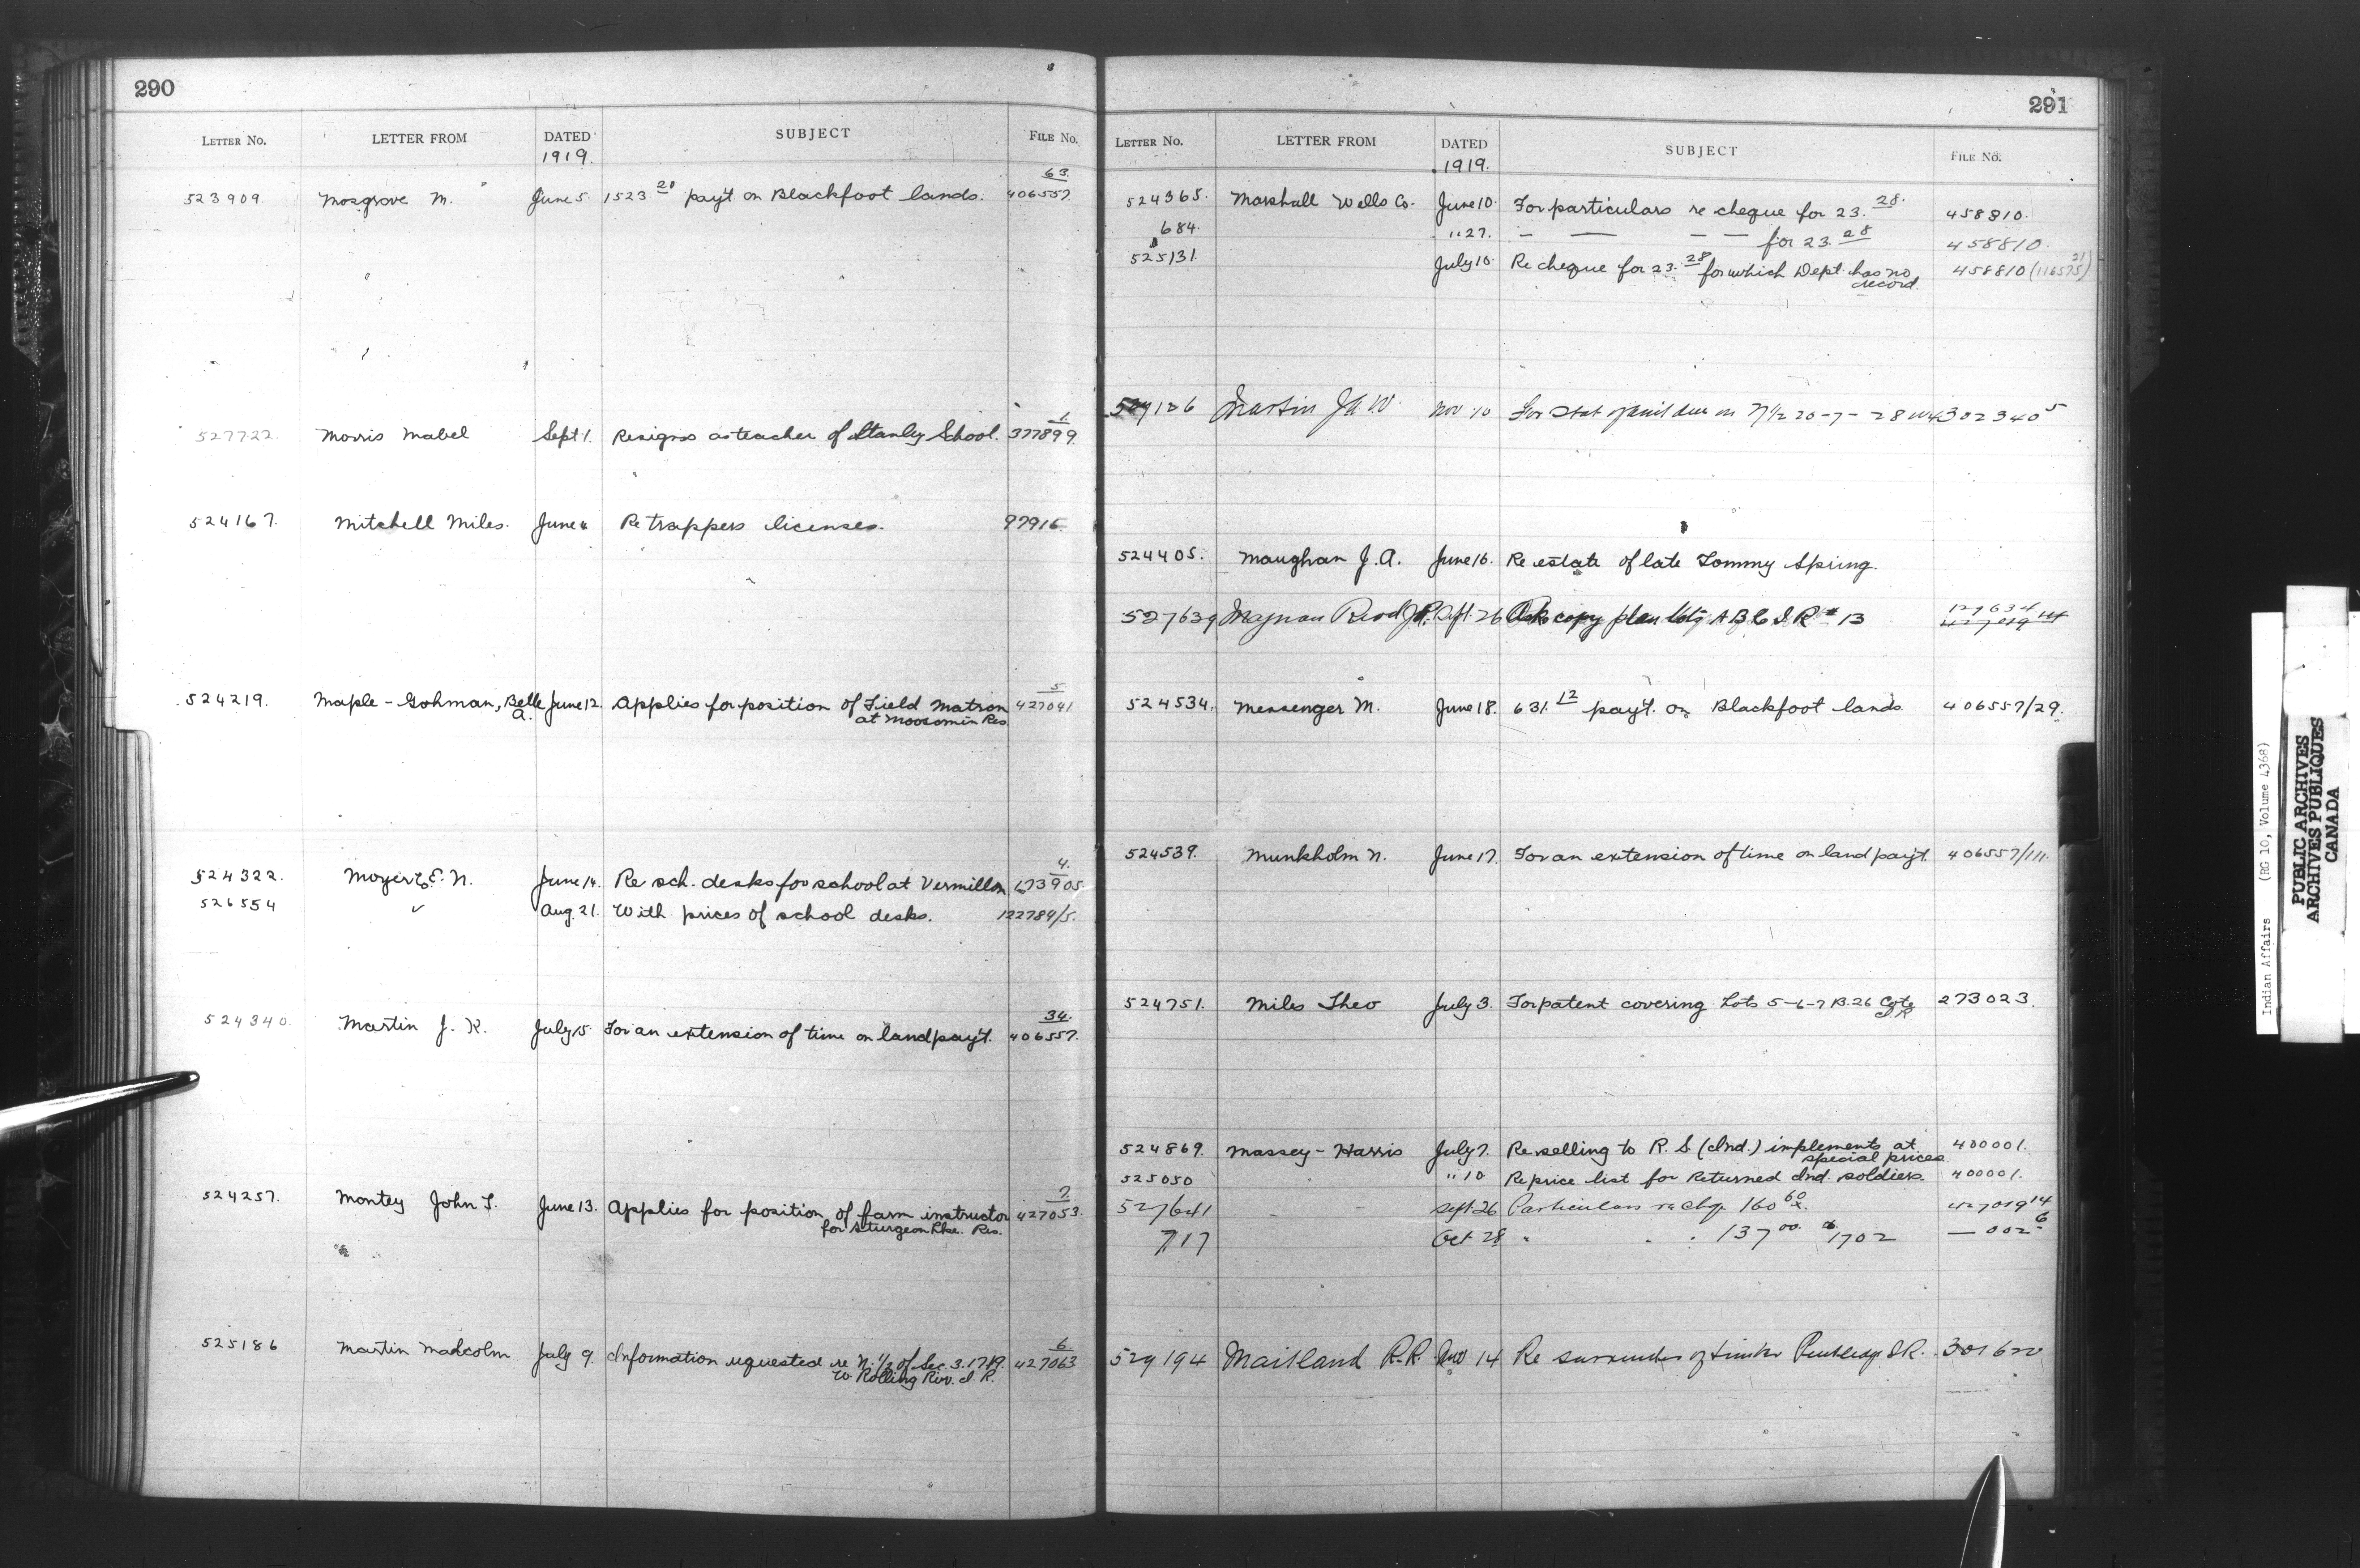 290
LETTER NO. LETTER FROM DATED SUBJECT FILE NO.
1919.
63.
523909 Mosgrove M. June 5. 1523 20 pay't on Blackfoot lands. 406557.
1.
527722 Morris Mabel Sept 1. Resigns as teacher of Stanly School. 377899
524167. Mitchell Miles. June 4 Re trappers licenses. 97916
5
524219. Maple-Gohman, Belle June 12. Applies for position of Field Matron 427041
A. at Moosomin Res.
4.
524322. Moyer E. N. June 14. Re sch. desks for school at Vermillon 673905
526554 Aug. 21. With prices of school desks. 122789/5.
34.
524340. Martin J. K. July 15. For an extension of time on land pay't. 406557.
7.
524257. Montey John T. June 13. Applies for position of farm instructor 427053.
for Sturgeon Lke. Res.
6
525186 Martin Malcolm July 9. Information requested re N. 1/2 of Sec. 3.17.19. 427063
W. Rolling Riv. I. R.
291
LETTER NO. LETTER FROM DATED SUBJECT FILE NO.
1919.
524365. Marshall Wells Co. June 10. For particulars re cheque for 23. 28. 458810.
684. " 27. — — — — for 23. 28 458810.
525131. July 10. Re cheque for 23. 28 for which Dept. has no 458810 (116575) 21
record.
Martin Nov 10
524405. Maughan J. A. June 16. Re estate of late Tommy Spring.
527639 Sept. 26 copy plan A B C I R # 13
524534. Messenger M. June 18. 631. 12 pay't. on Blackfoot lands 406557/29.
524539. Munkholm N. June 17. For an extension of time on land pay't. 406557/111.
524751. Miles Theo July 3. For patent covering Lots 5-6-7 B.26 Cote 273023.
I. R.
524869. Massey-Harris July 7. Re selling to R. S. (Ind.) implements at 400001.
special prices
525050 " 10 Re price list for Returned Ind. soldiers. 400001.
527641 - - Sept. 26 Particulars re chq. 160 60 427019 14
717 Oct 28 " 137 00 1702 — 002 6
529194 Maitland R.R. Nov 14 Re surrender of timber I.R.
Indian Affairs (RG 10, Volume 4368)
PUBLIC ARCHIVES
ARCHIVES PUBLIQUES
CANADA